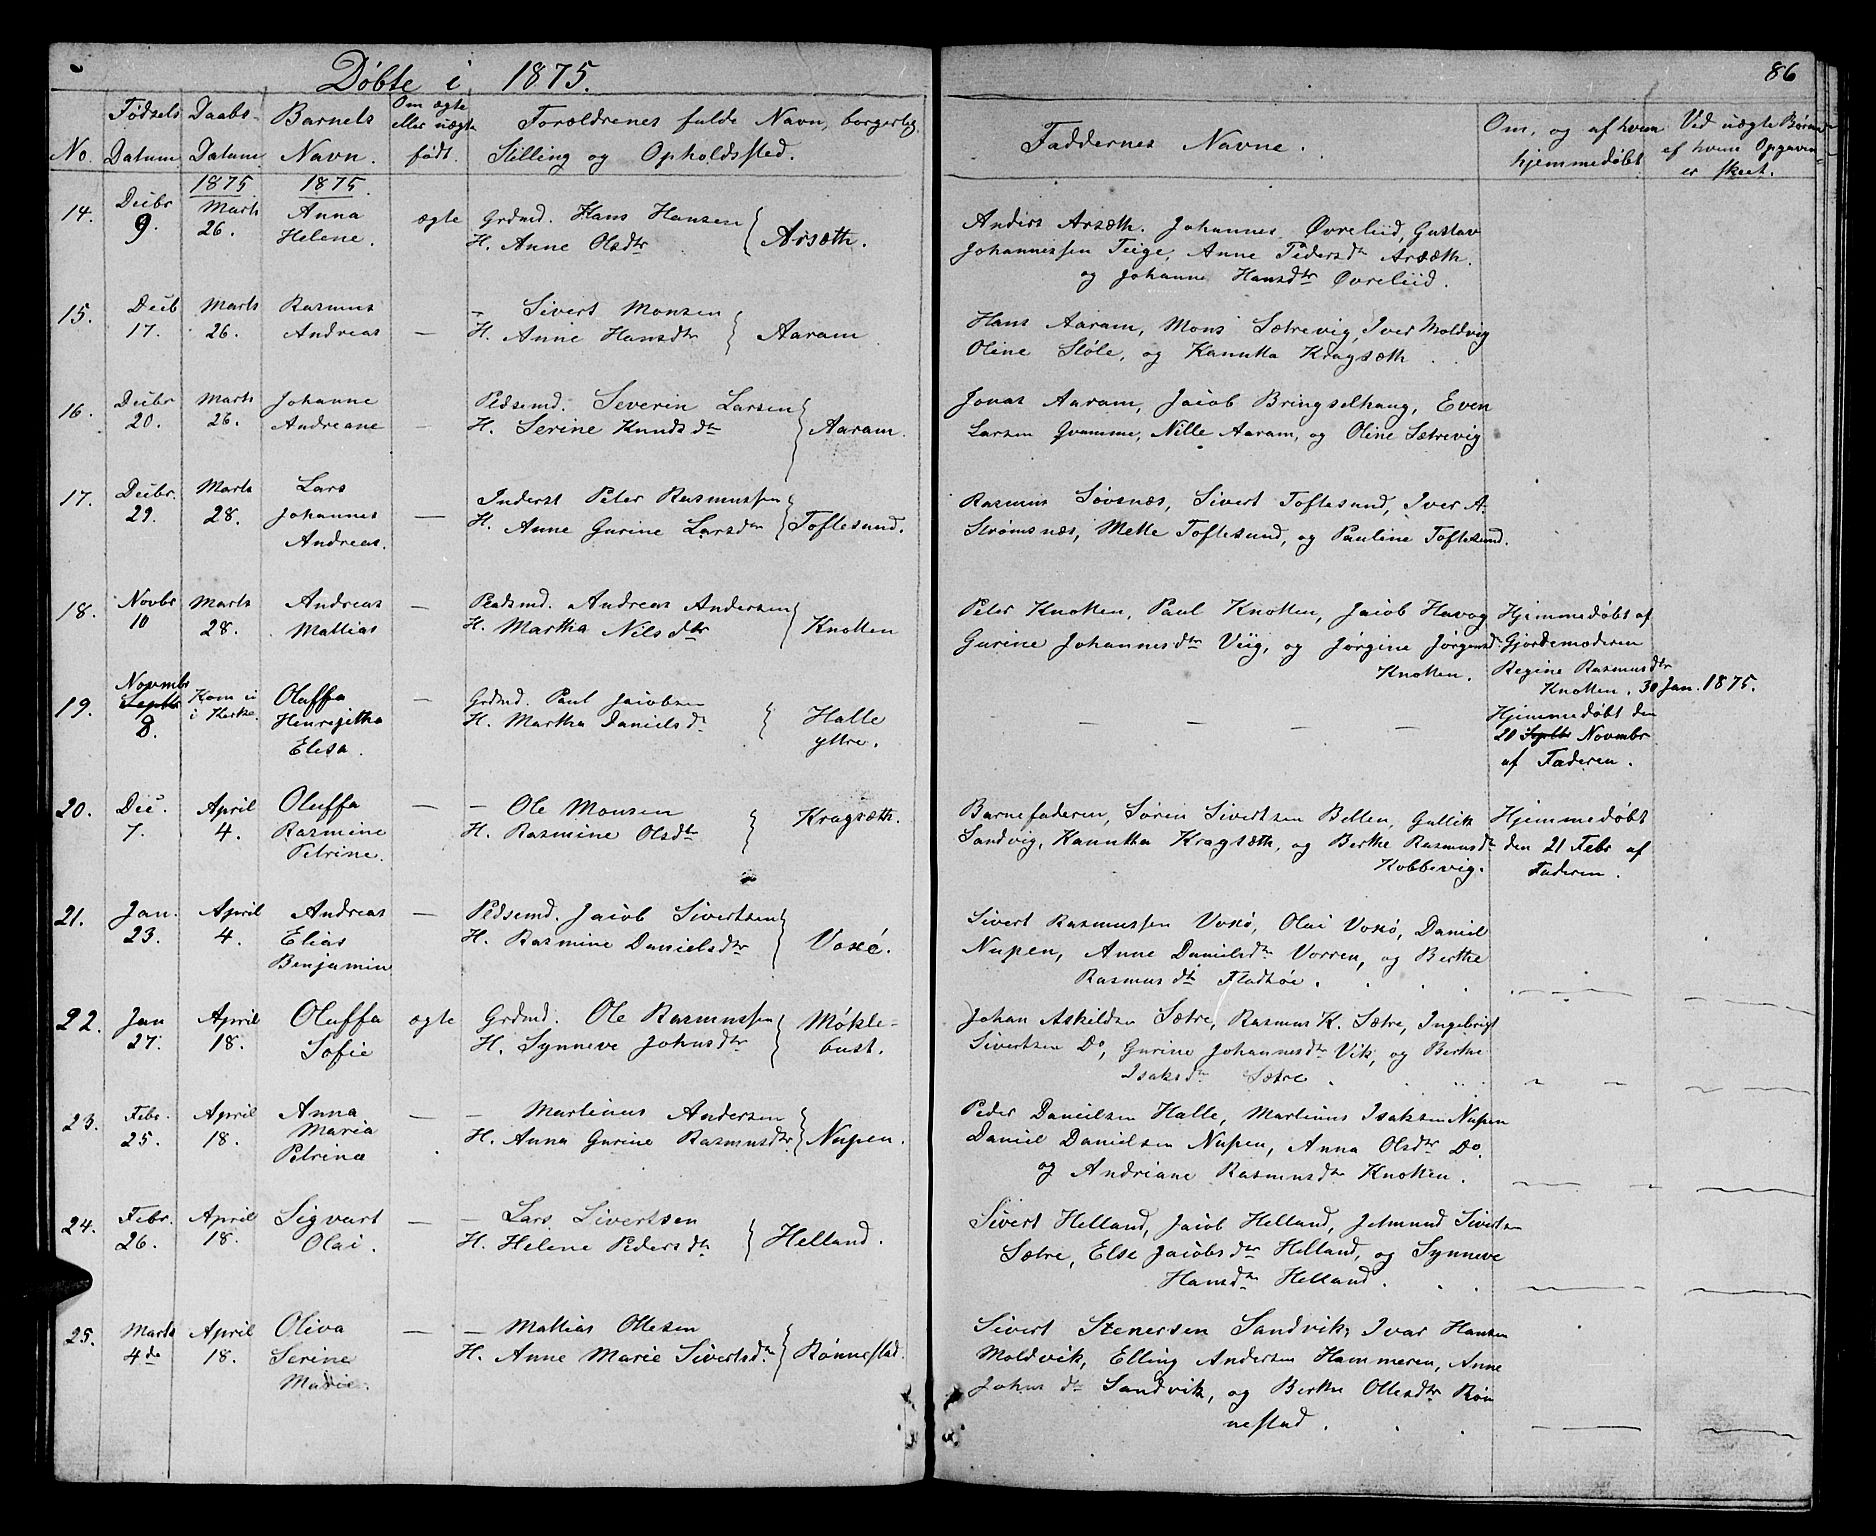 Døbte i 1875.
86
No.
Fødsels Datum
Daabs- Datum
Barnets Navn.
Om ægte eller uægte født.
Forældrenes fulde Navn, borgerlig Stilling og Opholdssted.
Faddernes Navne.
Om, og af hvem hjemmedøbt
Ved uægte Børn af hvem Opgaven er skeet.
1875 1875
14. Decbr 9. Marts 26. Anna Helene. ægte
Grdmd. Hans Hansen
H. Anne Olsdtr } Arsæth.
Anders Arsæth, Johannes Øvreliid, Gustav
Johannessen Teige, Anne Pedersdtr Arsæth.
og Johanne Hansdtr Øvreliid.
15. Decb 17. Marts 26. Rasmus Andreas —
— Sivert Monsen
H. Anne Hansdtr } Aaram
Hans Aaram, Mons Sætrevig, Iver Moldvig
Oline Støle, og Kanutta Kragsæth.
16. Decbr 20. Marts 26. Johanne Andreane —
Pldsemd. Severin Larsen
H. Serine Knudsdtr } Aaram.
Jonas Aaram, Jacob Bringselhaug, Even
Larsen Qvamme, Nille Aaram, og Oline Sætrevig
17. Decbr. 29. Marts 28. Lars Johannes Andreas. —
Inderst Peter Rasmussen
H. Anne Gurine Larsdtr } Toftesund.
Rasmus Søvsnæs, Sivert Toftesund, Iver A.
Strømsnæs, Mette Toftesund, og Pauline Toftesund.
18. Novbr 10 Marts 28. Andreas Mattias —
Pladsmd. Andreas Andersen
H. Martha Nilsdtr } Knotten
Peter Knotten, Paul Knotten, Jacob Havog
Gurine Johannesdtr Viig, og Jørgine Jørgensd
Knotten.
Hjemmedøbt af
Gjordemoderen
Regine Rasmusdtr
Knotten. 30 Jan. 1875.
19. Novmbr Septbr 8. Kom ei i Kirke. Oluffa Henrijetha Elesa. —
Grdmd. Paul Jacobsen
H. Martha Danielsdr } Halle yttre.
— — — —
Hjemmedøbt den
20 Septbr Novmbr
af Faderen.
20. Dec. 7. April 4. Oluffa Rasmine Petrine. —
— Ole Monsen
H. Rasmine Olsdtr } Kragsæth.
Barnefaderen, Søren Sivertsen Betten, Gullik
Sandvig, Kanutta Kragsæth, og Berthe Rasmusdtr
Kobbevig.
Hjemmedøbt
den 21 Febr af
Faderen.
21. Jan. 23. April 4. Andreas Elias Benjamin —
Pldsemd. Jacob Sivertsen
H. Rasmine Danielsdtr } Voxø.
Sivert Rasmussen Voxø, Olai Voxø, Daniel
Nupen, Anne Danielsdtr Vorren, og Berthe
Rasmusdtr Fladhøe.
22. Jan 27. April 18. Oluffa Sofie ægte
Grdmd. Ole Rasmussen
H. Synneve Johnsdtr } Møkle- bust.
Johan Askildsen Sætre, Rasmus K. Sætre, Ingebrigt
Sivertsen Do, Gurine Johannesdtr Vik, og Berthe
Isaksdtr Sætre
23. Febr. 25. April 18. Anna Maria Petrina —
— Martinus Andersen
H. Anna Gurine Rasmusdtr } Nupen.
Peder Danielsen Halle, Martinus Isaksen Nupen
Daniel Danielsen Nupen, Anna Olsdtr Do.
og Andriane Rasmusdtr Knotten.
24. Febr. 26. April 18. Sigvart Olai. —
— Lars Sivertsen
H. Helene Pedersdtr } Helland.
Sivert Helland, Jacob Helland, Jetmund Sivertsen
Sætre, Else Jacobsdtr Helland, og Synneve
Hansdtr Helland.
25. Marts 4de April 18. Oliva Serine Marie. —
— Mattias Ottesen
H. Anne Marie Sivertsdtr } Rønnestad.
Sivert Stenersen Sandvik, Ivar Hansen
Moldvik, Elling Andersen Hammeren, Anne
Johnsdtr Sandvik, og Berthe Ottesdtr Røn
nestad.